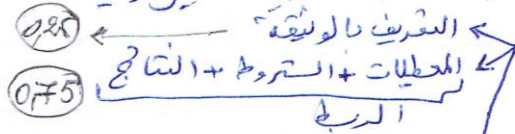 0,25 ← التعريف بالوثيقة
0,75 المعطيات + الشروط + النتائج
الربط